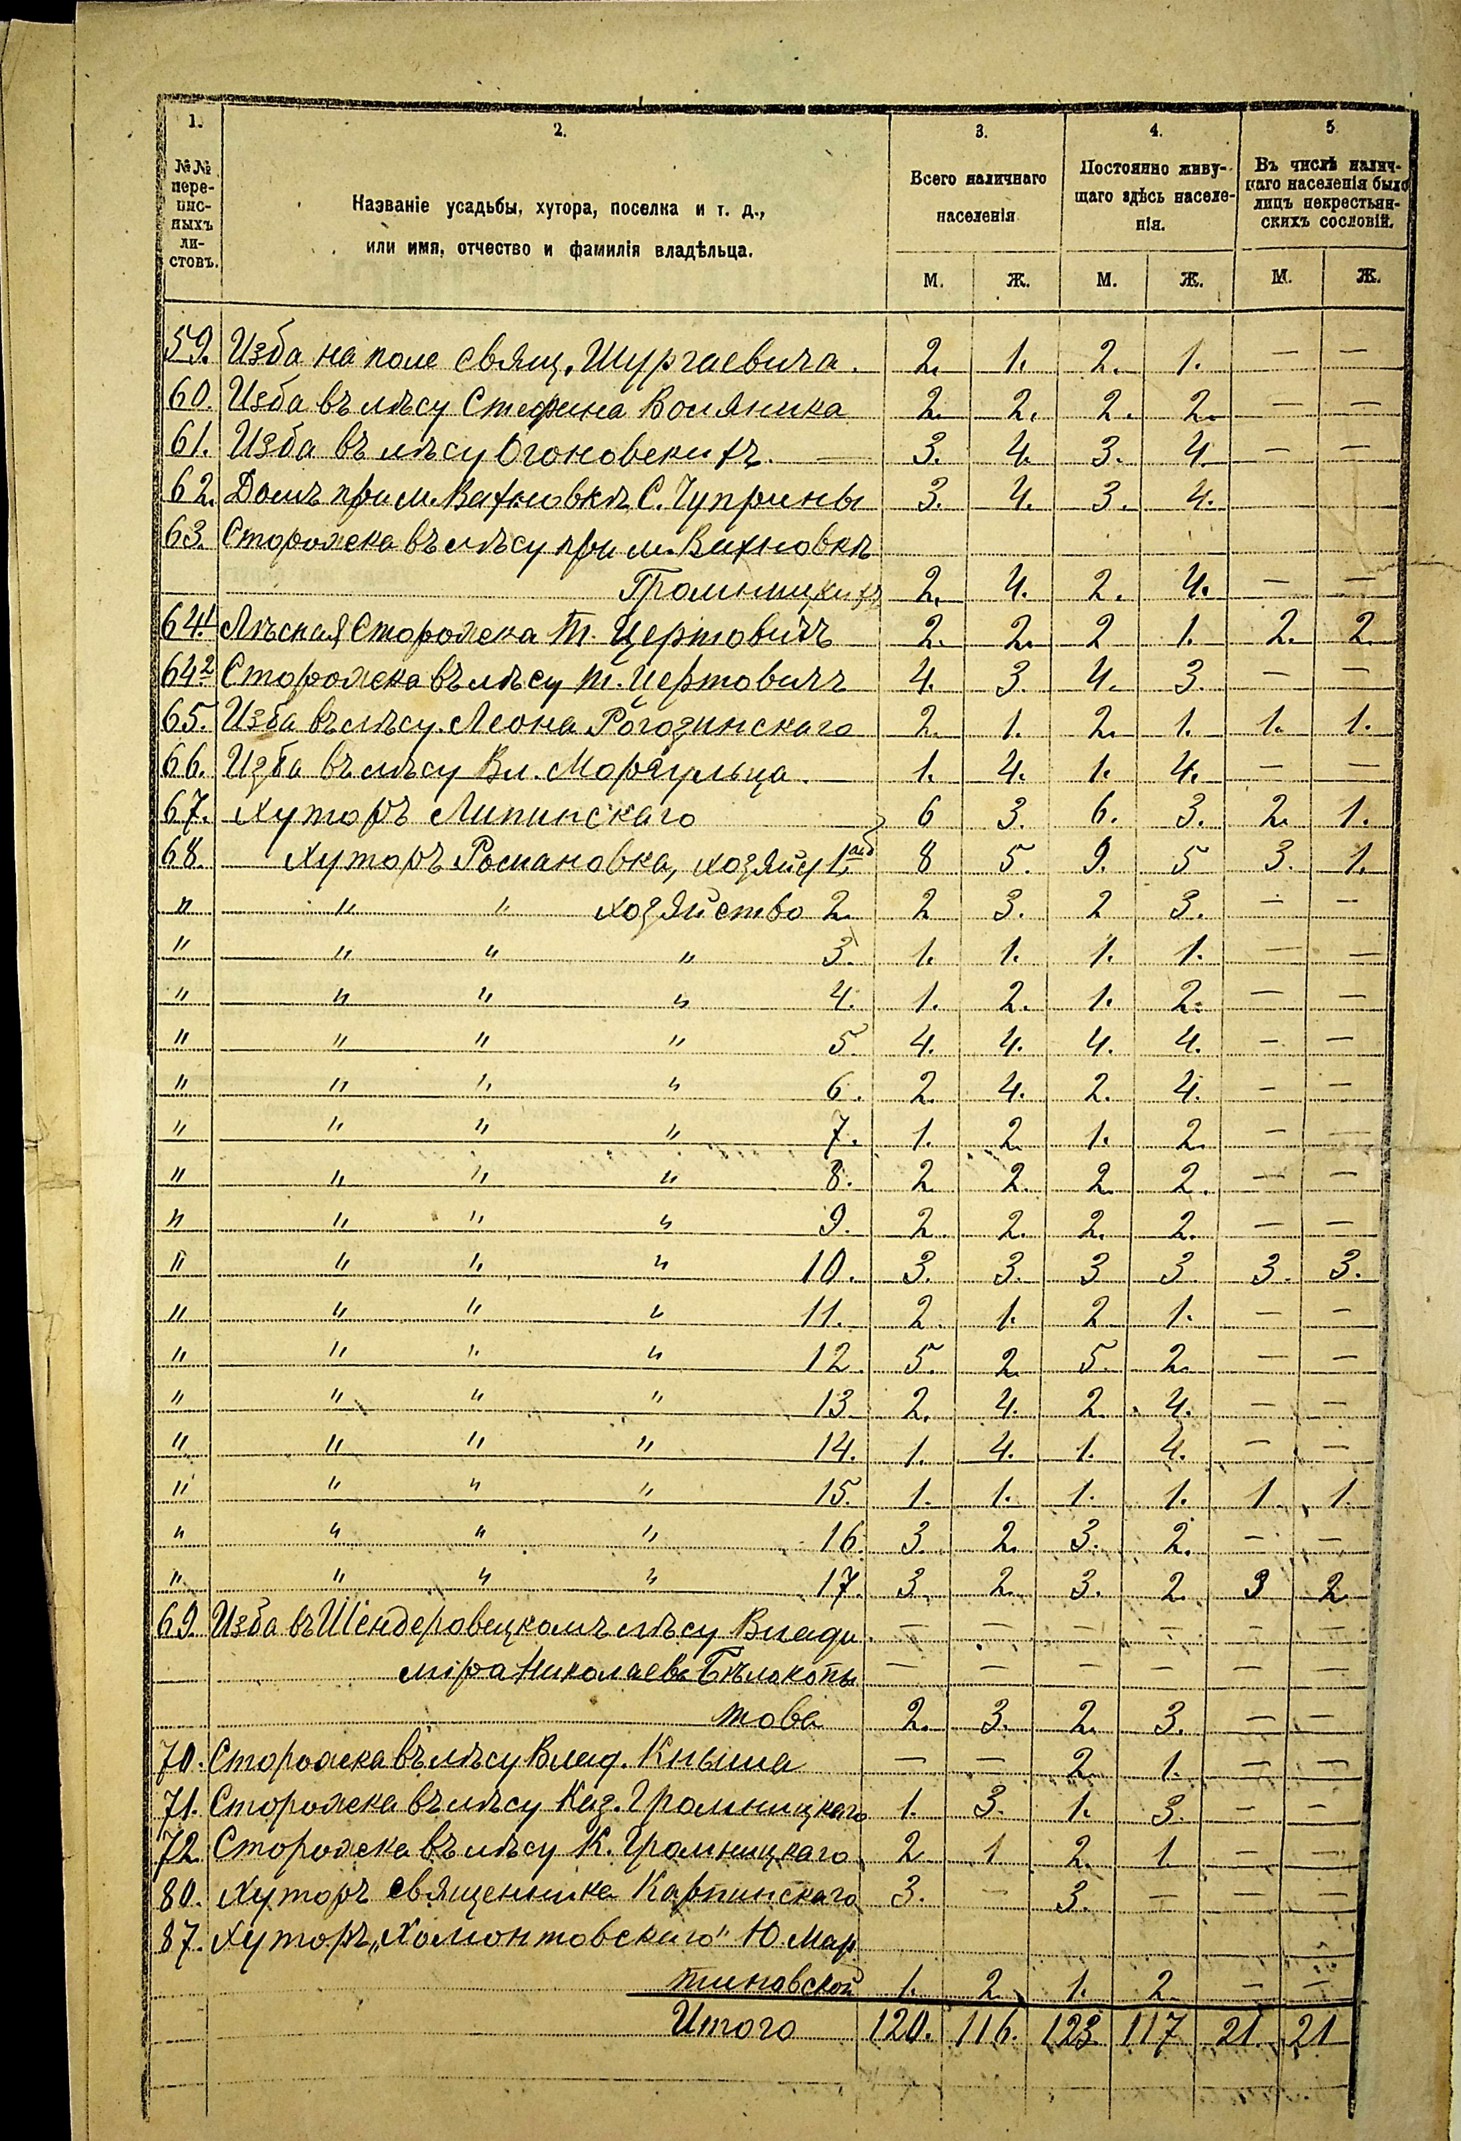 1. 2. 3. 4. 5
№№ пере-писныхъ листовъ. Названіе усадьбы, хутора, поселка и т. д., или имя, отчество и фамилія владѣльца. Всего наличнаго населенія Постоянно живущаго здѣсь населенія. Въ числѣ наличнаго населенія было лицъ некрестьянскихъ сословій.
М. Ж. М. Ж. М. Ж.
59. Изба на поле свящ. Шургаевича. 2. 1. 2. 1. — —
60. Изба въ лѣсу Стефана Воляника 2. 2. 2. 2. — —
61. Изба въ лѣсу Огоновскихъ. — 3. 4. 3. 4. — —
62. Домъ при м. Вахновкѣ С. Чуприны 3. 4. 3. 4.
63. Сторожка въ лѣсу при м. Вахновкѣ
Громницкихъ 2. 4. 2. 4. — —
64.1 Лѣсная Сторожка т. Цертовичъ 2. 2. 2 1. 2. 2
64 2 Сторожка въ лѣсу т. Цертовичъ 4. 3. 4. 3. — —
65. Изба въ лѣсу Леона Рогозинскаго 2. 1. 2. 1. 1. 1.
66. Изба въ лѣсу Вл. Моргульца. — 1. 4. 1. 4. — —
67. Хуторъ Липинскаго 6 3. 6. 3. 2. 1.
68. Хуторъ Романовка, хозяйст 1. 8 5. 9. 5 3. 1.
" " " хозяйство 2. 2 3. 2 3. — —
" " " " 3. 1. 1. 1. 1. — —
" " " " 4. 1. 2. 1. 2. — —
" " " " 5. 4. 4. 4. 4. — —
" " " " 6. 2. 4. 2. 4. — —
" " " " 7. 1. 2 1. 2. — —
" " " " 8. 2 2. 2 2. — —
" " " " 9. 2. 2. 2. 2. — —
" " " " 10. 3. 3. 3 3 3. 3.
" " " " 11. 2. 1. 2 1. — —
" " " " 12. 5. 2 5. 2. — —
" " " " 13 2. 4. 2. 4. — —
" " " " 14. 1. 4. 1. 4. — —
" " " " 15. 1. 1. 1. 1. 1. 1.
" " " " 16. 3. 2. 3. 2. — —
" " " " 17. 3. 2. 3. 2 3 2
69. Изба въ Шендеровецкомъ лѣсу Влади — — — — — —
міра Николаев. Бѣлокопы — — — — — —
това 2. 3. 2. 3. — —
70. Сторожка въ лѣсу Влад. Кныша — — 2. 1. — —
71. Сторожка въ лѣсу Каз. Громницкаго 1. 3. 1. 3. — —
72. Сторожка въ лѣсу К. Громницкаго 2 1 2. 1. — —
80. Хуторъ священника Карпинскаго 3. — 3. — — —
87. Хуторъ „Хомонтовскаго" Ю. Мар
тиновской 1. 2. 1. 2. — —
Итого 120. 116. 123 117 21. 21